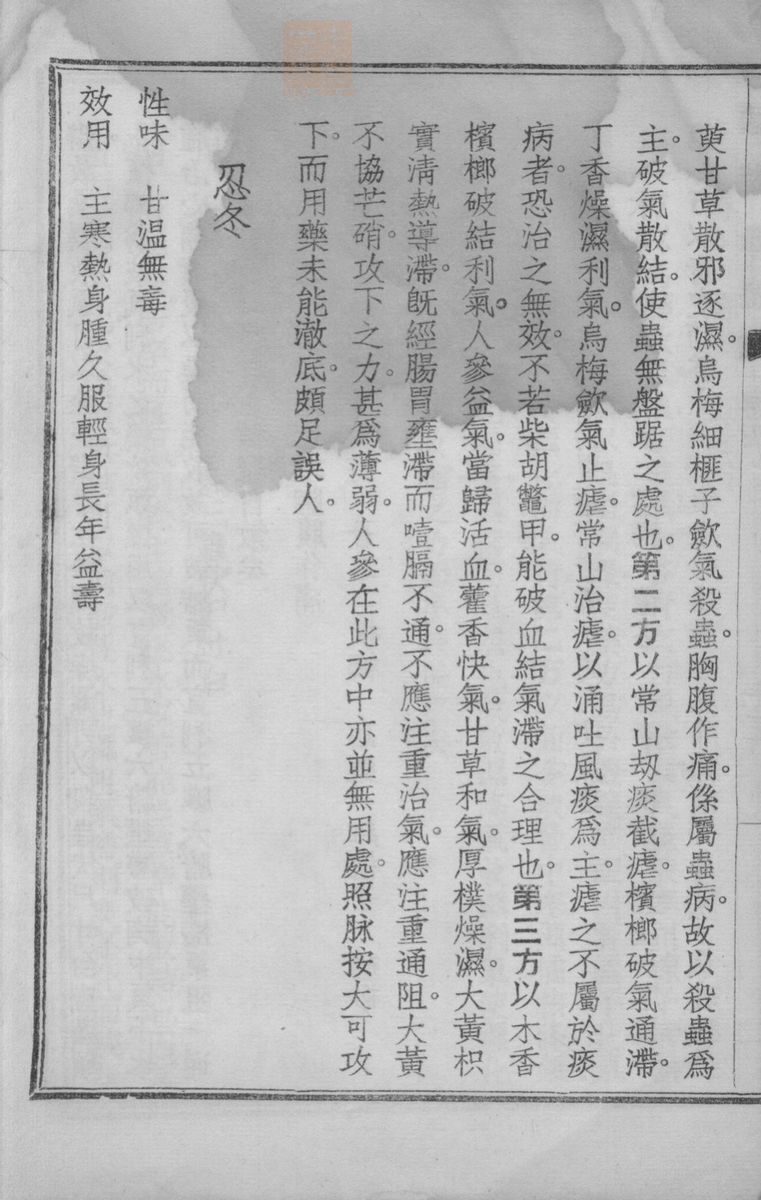 萸甘草散邪逐濕。烏梅細榧子歛氣殺蟲。胸腹作痛。係屬蟲病。故以殺蟲爲
主。破氣散結。使蟲無盤踞之處也。第二方以常山刼痰截瘧。檳榔破氣通滯。
丁香燥濕利氣。烏梅歛氣止瘧。常山治瘧。以涌吐風痰爲主。瘧之不屬於痰
病者。恐治之無效。不若柴胡鼈甲。能破血結氣滯之合理也。第三方以木香
檳榔破結利氣。人參益氣。當歸活血。藿香快氣。甘草和氣。厚樸燥濕。大黃枳
實淸熱導滯。旣經腸胃壅滯而噎膈不通。不應注重治氣。應注重通阻。大黃
不協芒硝。攻下之力。甚爲薄弱。人參在此方中亦並無用處。照脉按大可攻
下。而用藥未能澈底。頗足誤人。
忍冬
性味　甘温無毒
效用　主寒熱身腫久服輕身長年益壽